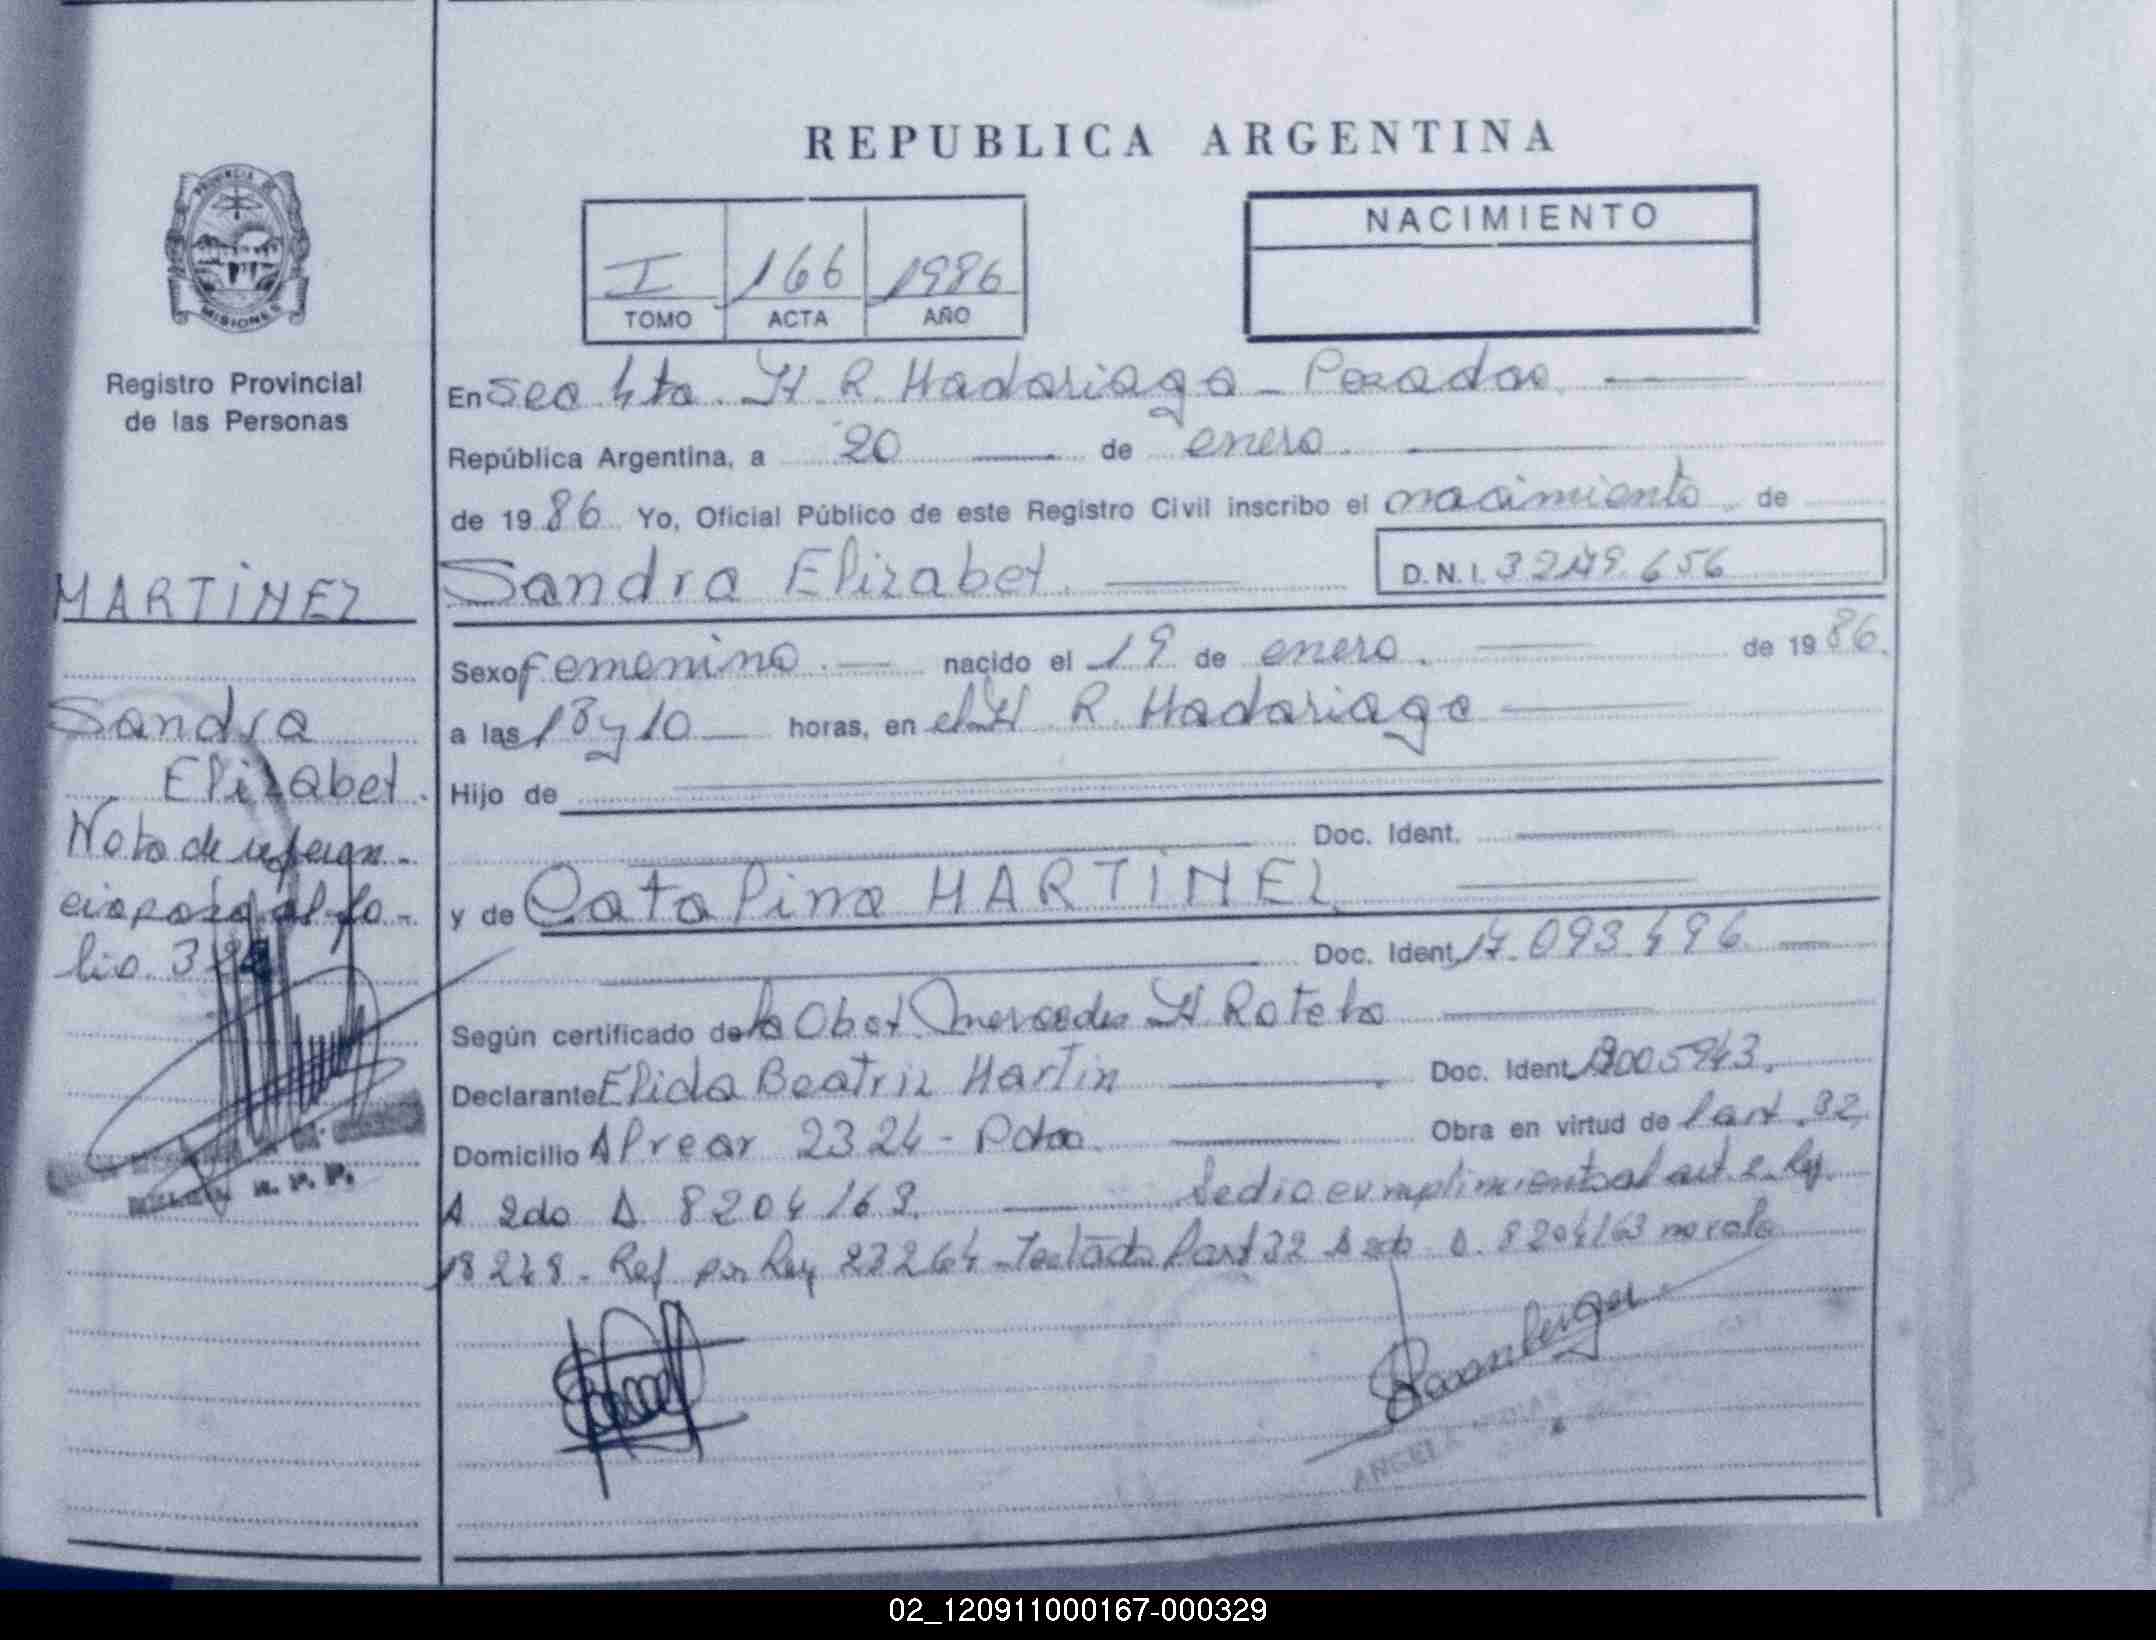 REPUBLICA ARGENTINA
PROVINCIA DE
MISIONES
Registro Provincial
de las Personas
I 166 1986
TOMO ACTA AÑO
NACIMIENTO
En Sec 4ta. H. R. Madariaga - Posadas.
República Argentina, a 20 de enero.
de 1986 Yo, Oficial Público de este Registro Civil inscribo el nacimiento de
Sandra Elizabet. D.N.I.
Sexo femenino. nacido el 19 de enero. de 1986.
a las 18 y 10 horas, en el H R. Madariaga
Hijo de
Doc. Ident.
y de Catalina MARTINEZ
Doc. Ident. 17.093.496.
Según certificado de la Obst. Mercedes H
Declarante Elida Beatriz Martin Doc. Ident.
Domicilio Alvear 2324 - Pdas. Obra en virtud de l'art. 32
A 2do D. 8204/63. Se dio cumplimiento al art. 2 Ley
18248. Ref por Ley 23264 - Testado l'art 32 A 2do D. 8204/63 no vale
ANGELA
MARTINEZ
Sandra
Elizabet.
Nota de referen-
cia pasa al fo-
lio
02_120911000167-000329